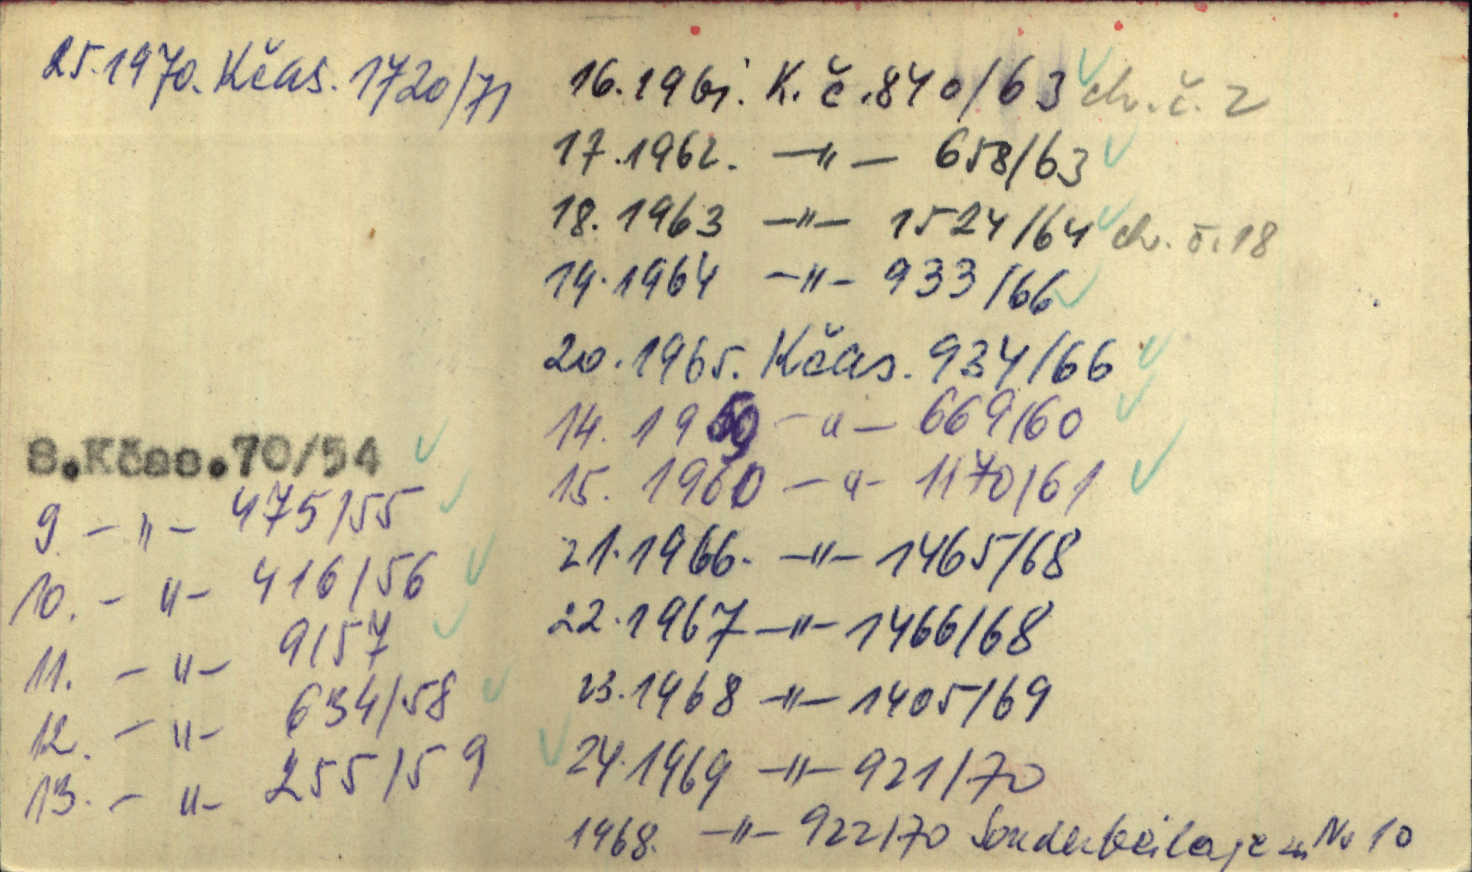 25.1970. Kčas. 1720/71
8.Kčas.70/54
9. — " — 475/55
10. — " — 416/56
11. — " — 9/57
12. — " — 634/58
13. — " — 255/59
16.1961. K. č. 840/63 chv. č. 2
17.1962. — " — 658/63
18.1963 — " — 1524/64 chv. č. 18
19.1964 — " — 933/66
20.1965. Kčas. 934/66
14. 1959 — " — 669/60
15. 1960 — " — 1170/61
21.1966. — " — 1465/68
22.1967 — " — 1466/68
23.1968 — " — 1405/69
24.1969 — " — 921/70
1968. — " — 922/70 Sonderbeilage No 10